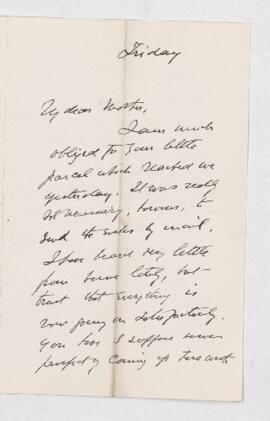 Friday
My dear Mother,
I am much
obliged for your little
parcel which reached me
yesterday. It was really
unnecessary, however, to
send the socks by mail.
I have heard very little
from home lately, but
trust that everything is
now going on satisfactorily.
You have I suppose
perfectly coming up